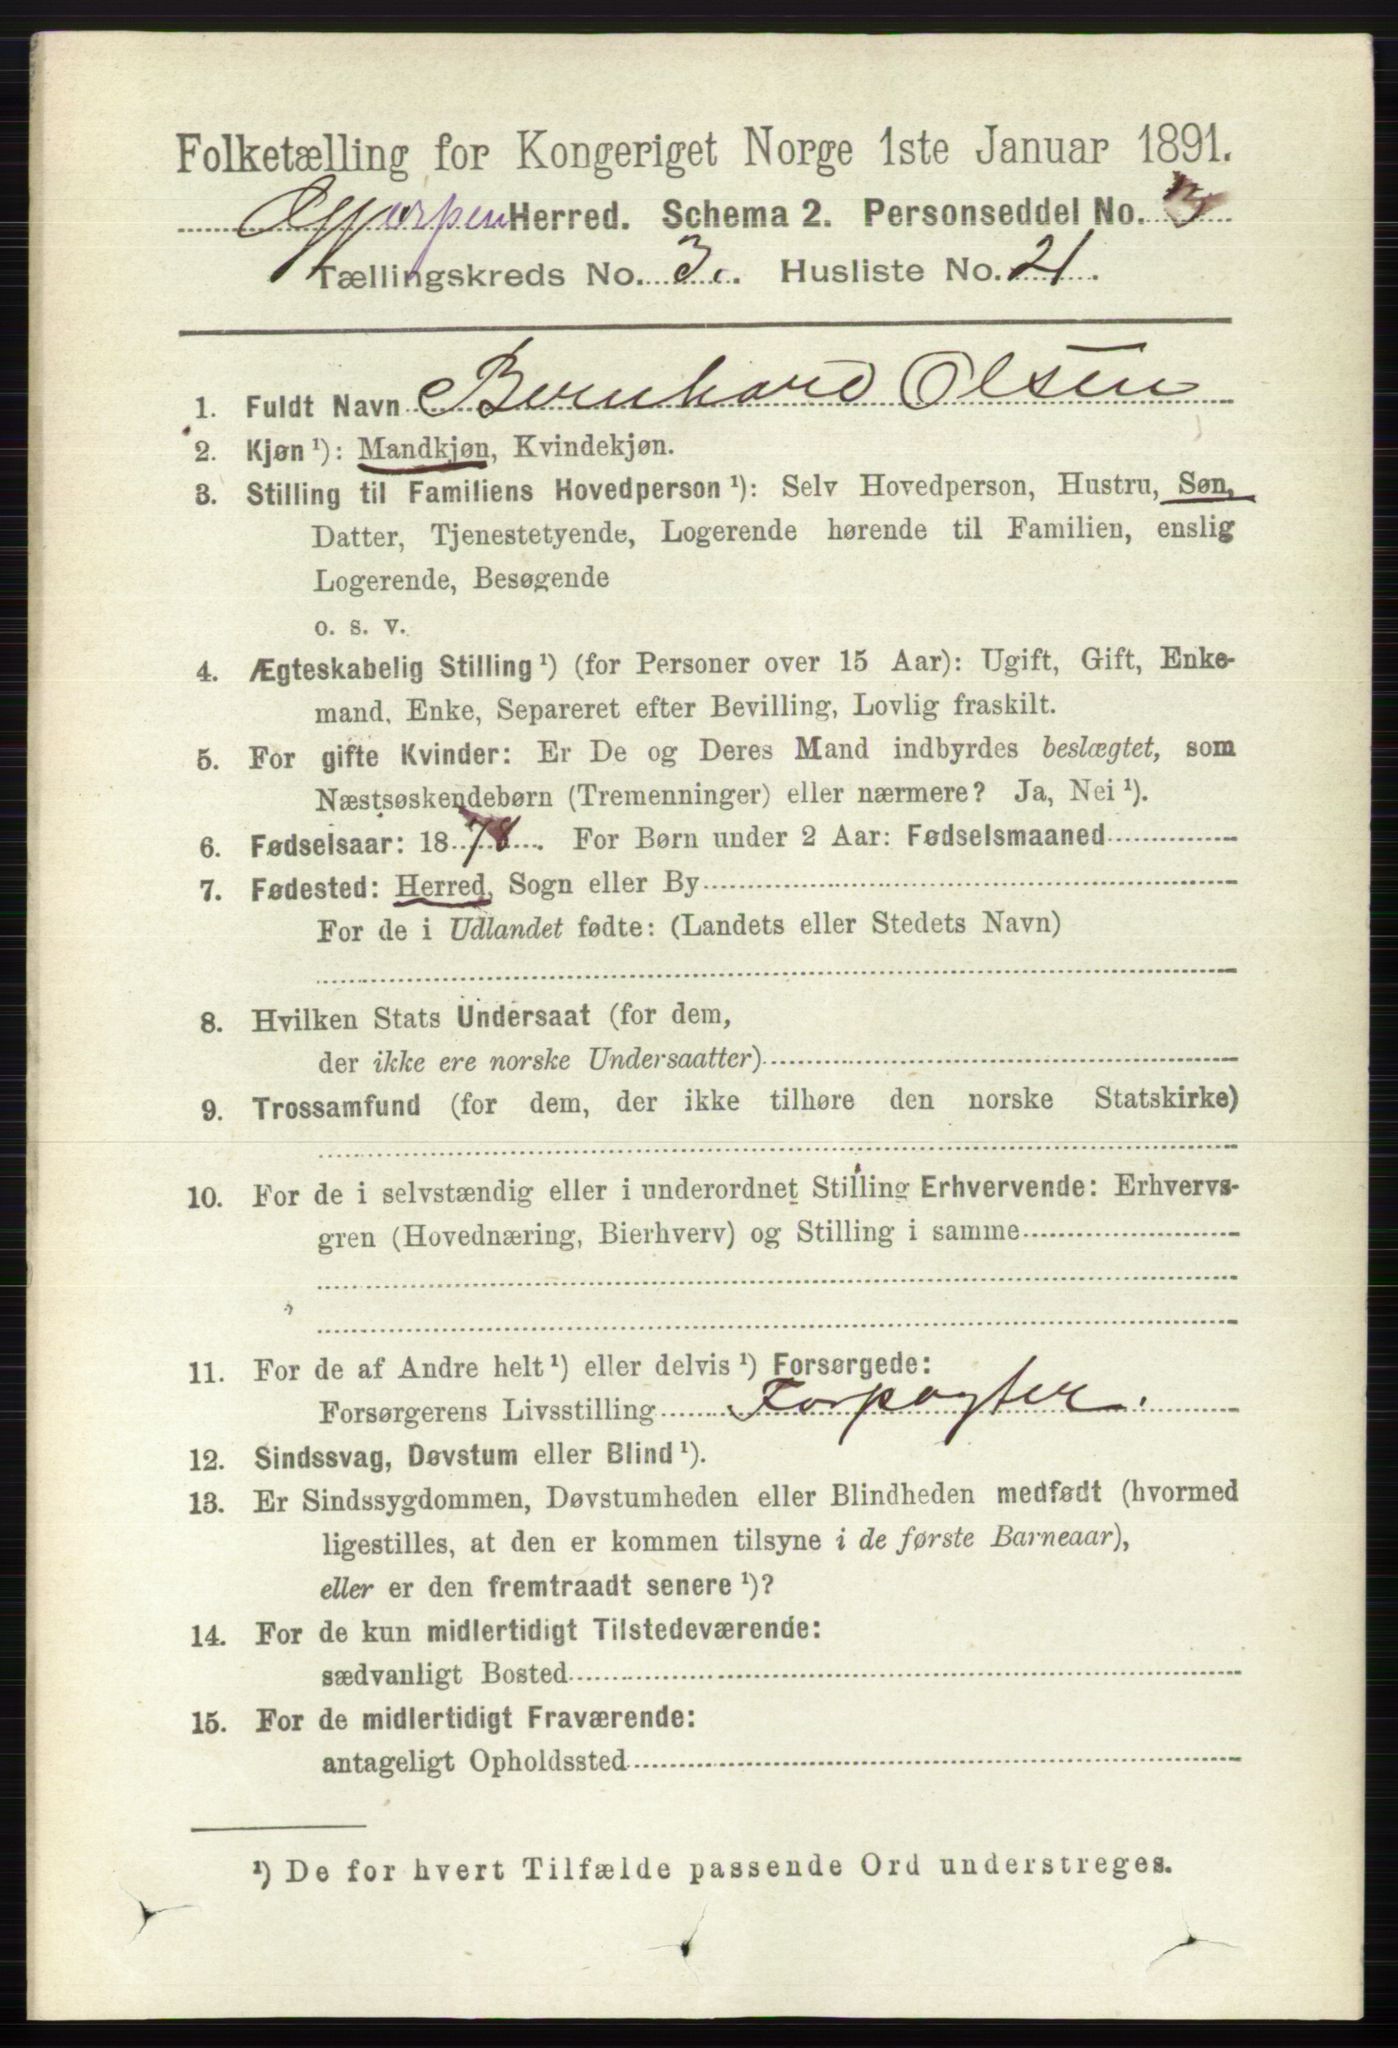 Folketælling for Kongeriget Norge 1ste Januar 1891.
Gjerpen Herred. Schema 2. Personseddel No. 3
Tællingskreds No. 3. Husliste No. 21.
1. Fuldt Navn Bernhard Olsen
2. Kjøn ¹): Mandkjøn, Kvindekjøn.
3. Stilling til Familiens Hovedperson ¹): Selv Hovedperson, Hustru, Søn,
Datter, Tjenestetyende, Logerende hørende til Familien, enslig
Logerende, Besøgende
o. s. v.
4. Ægteskabelig Stilling ¹) (for Personer over 15 Aar): Ugift, Gift, Enke-
mand, Enke, Separeret efter Bevilling, Lovlig fraskilt.
5. For gifte Kvinder: Er De og Deres Mand indbyrdes beslægtet, som
Næstsøskendebørn (Tremenninger) eller nærmere? Ja, Nei ¹).
6. Fødselsaar: 1878. For Børn under 2 Aar: Fødselsmaaned
7. Fødested: Herred, Sogn eller By
For de i Udlandet fødte: (Landets eller Stedets Navn)
8. Hvilken Stats Undersaat (for dem,
der ikke ere norske Undersaatter)
9. Trossamfund (for dem, der ikke tilhøre den norske Statskirke)
10. For de i selvstændig eller i underordnet Stilling Erhvervende: Erhvervs-
gren (Hovednæring, Bierhverv) og Stilling i samme
11. For de af Andre helt ¹) eller delvis ¹) Forsørgede:
Forsørgerens Livsstilling Forpagter.
12. Sindssvag, Døvstum eller Blind ¹).
13. Er Sindssygdommen, Døvstumheden eller Blindheden medfødt (hvormed
ligestilles, at den er kommen tilsyne i de første Barneaar),
eller er den fremtraadt senere ¹)?
14. For de kun midlertidigt Tilstedeværende:
sædvanligt Bosted
15. For de midlertidigt Fraværende:
antageligt Opholdssted
¹) De for hvert Tilfælde passende Ord understreges.